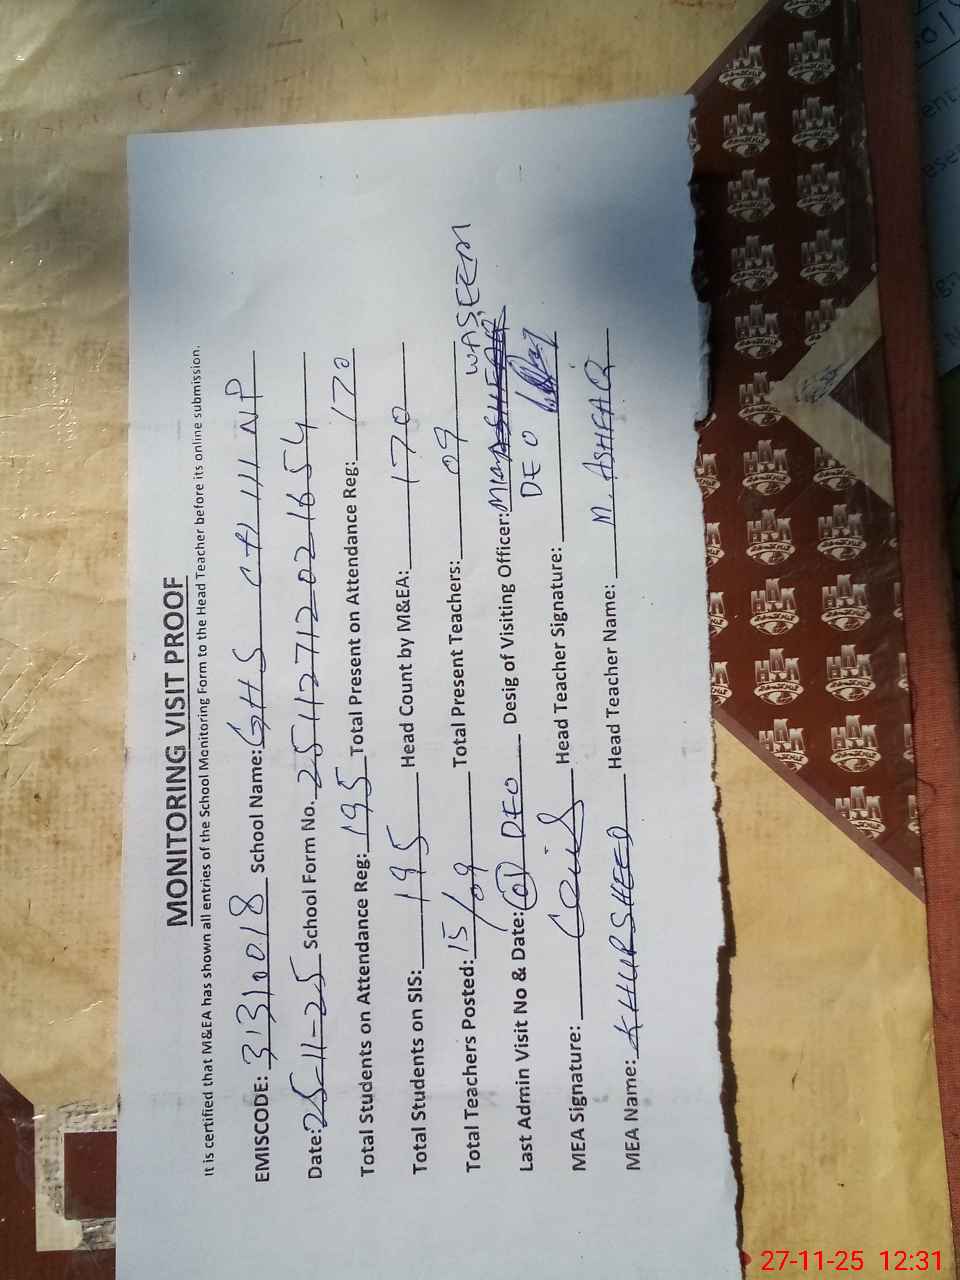 MONITORING VISIT PROOF
It is certified that M&EA has shown all entries of the School Monitoring Form to the Head Teacher before its online submission.
EMISCODE: 31310018 School Name: GHS CH 111 NP
Date: 25-11-25 School Form No. 25112712021654
Total Students on Attendance Reg: 195 Total Present on Attendance Reg: 170
Total Students on SIS: 195 Head Count by M&EA: 170
Total Teachers Posted: 15/09 Total Present Teachers: 09
WASEEM
Last Admin Visit No & Date: 01 DEO Desig of Visiting Officer:
DEO
MEA Signature: Head Teacher Signature:
MEA Name: KHURSHEED Head Teacher Name: M. ASHFAQ
27-11-25 12:31